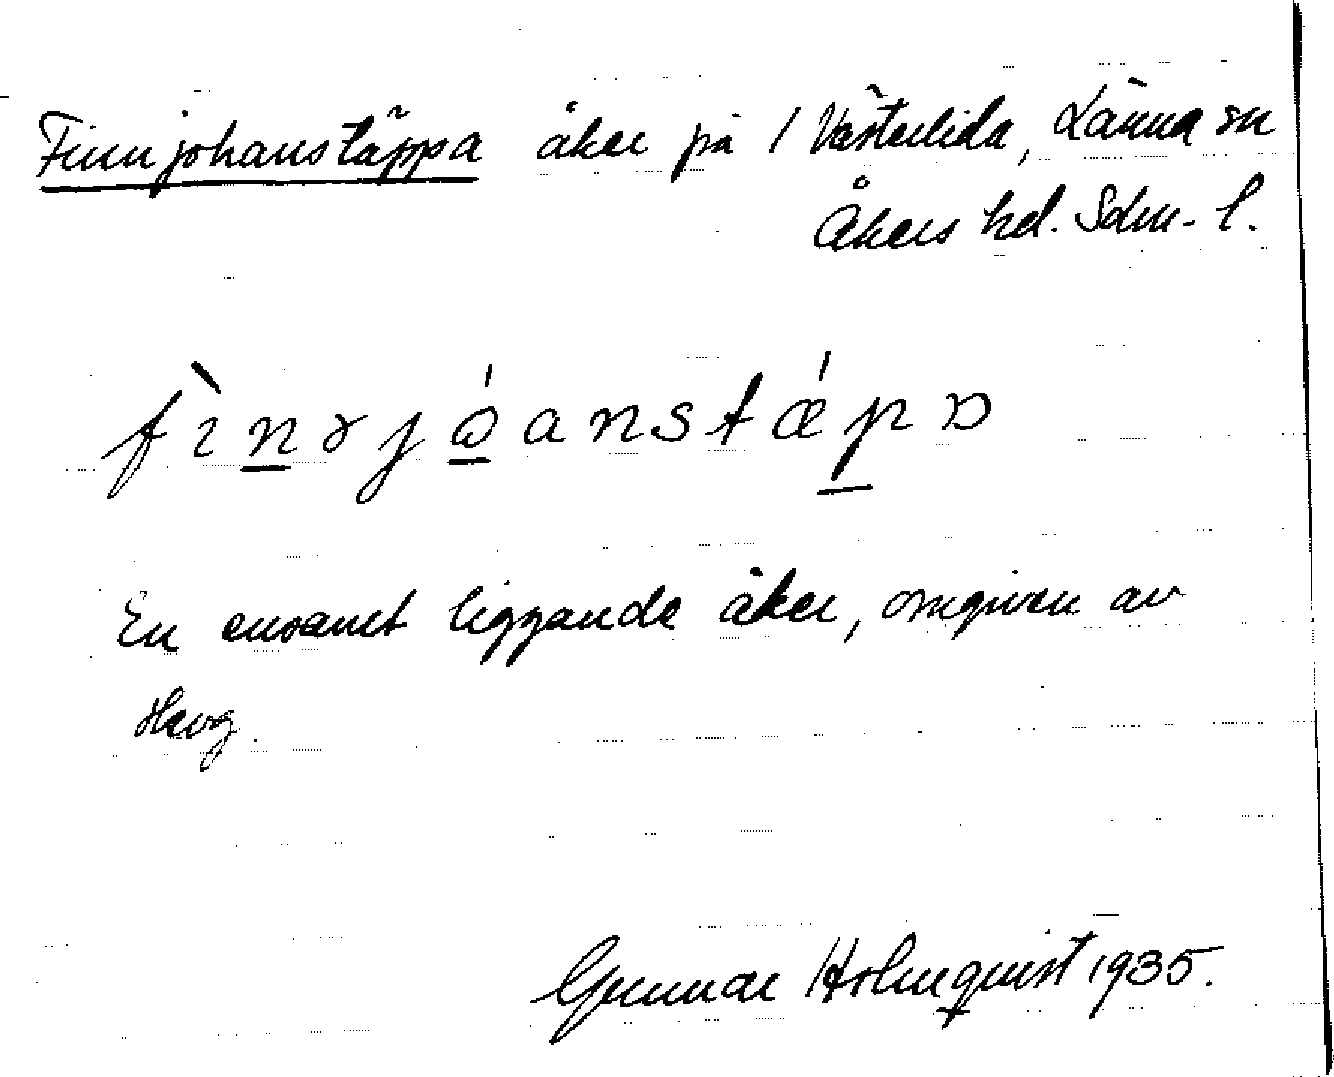 Finnjohanstäppa åker på 1 Västerlida, Länna sn
Åkers hd. Sdm. l.
fìnɤjóanstǽpɒ
En ensamt liggande åker, omgiven av
skog.
Gunnar Holmquist 1935.